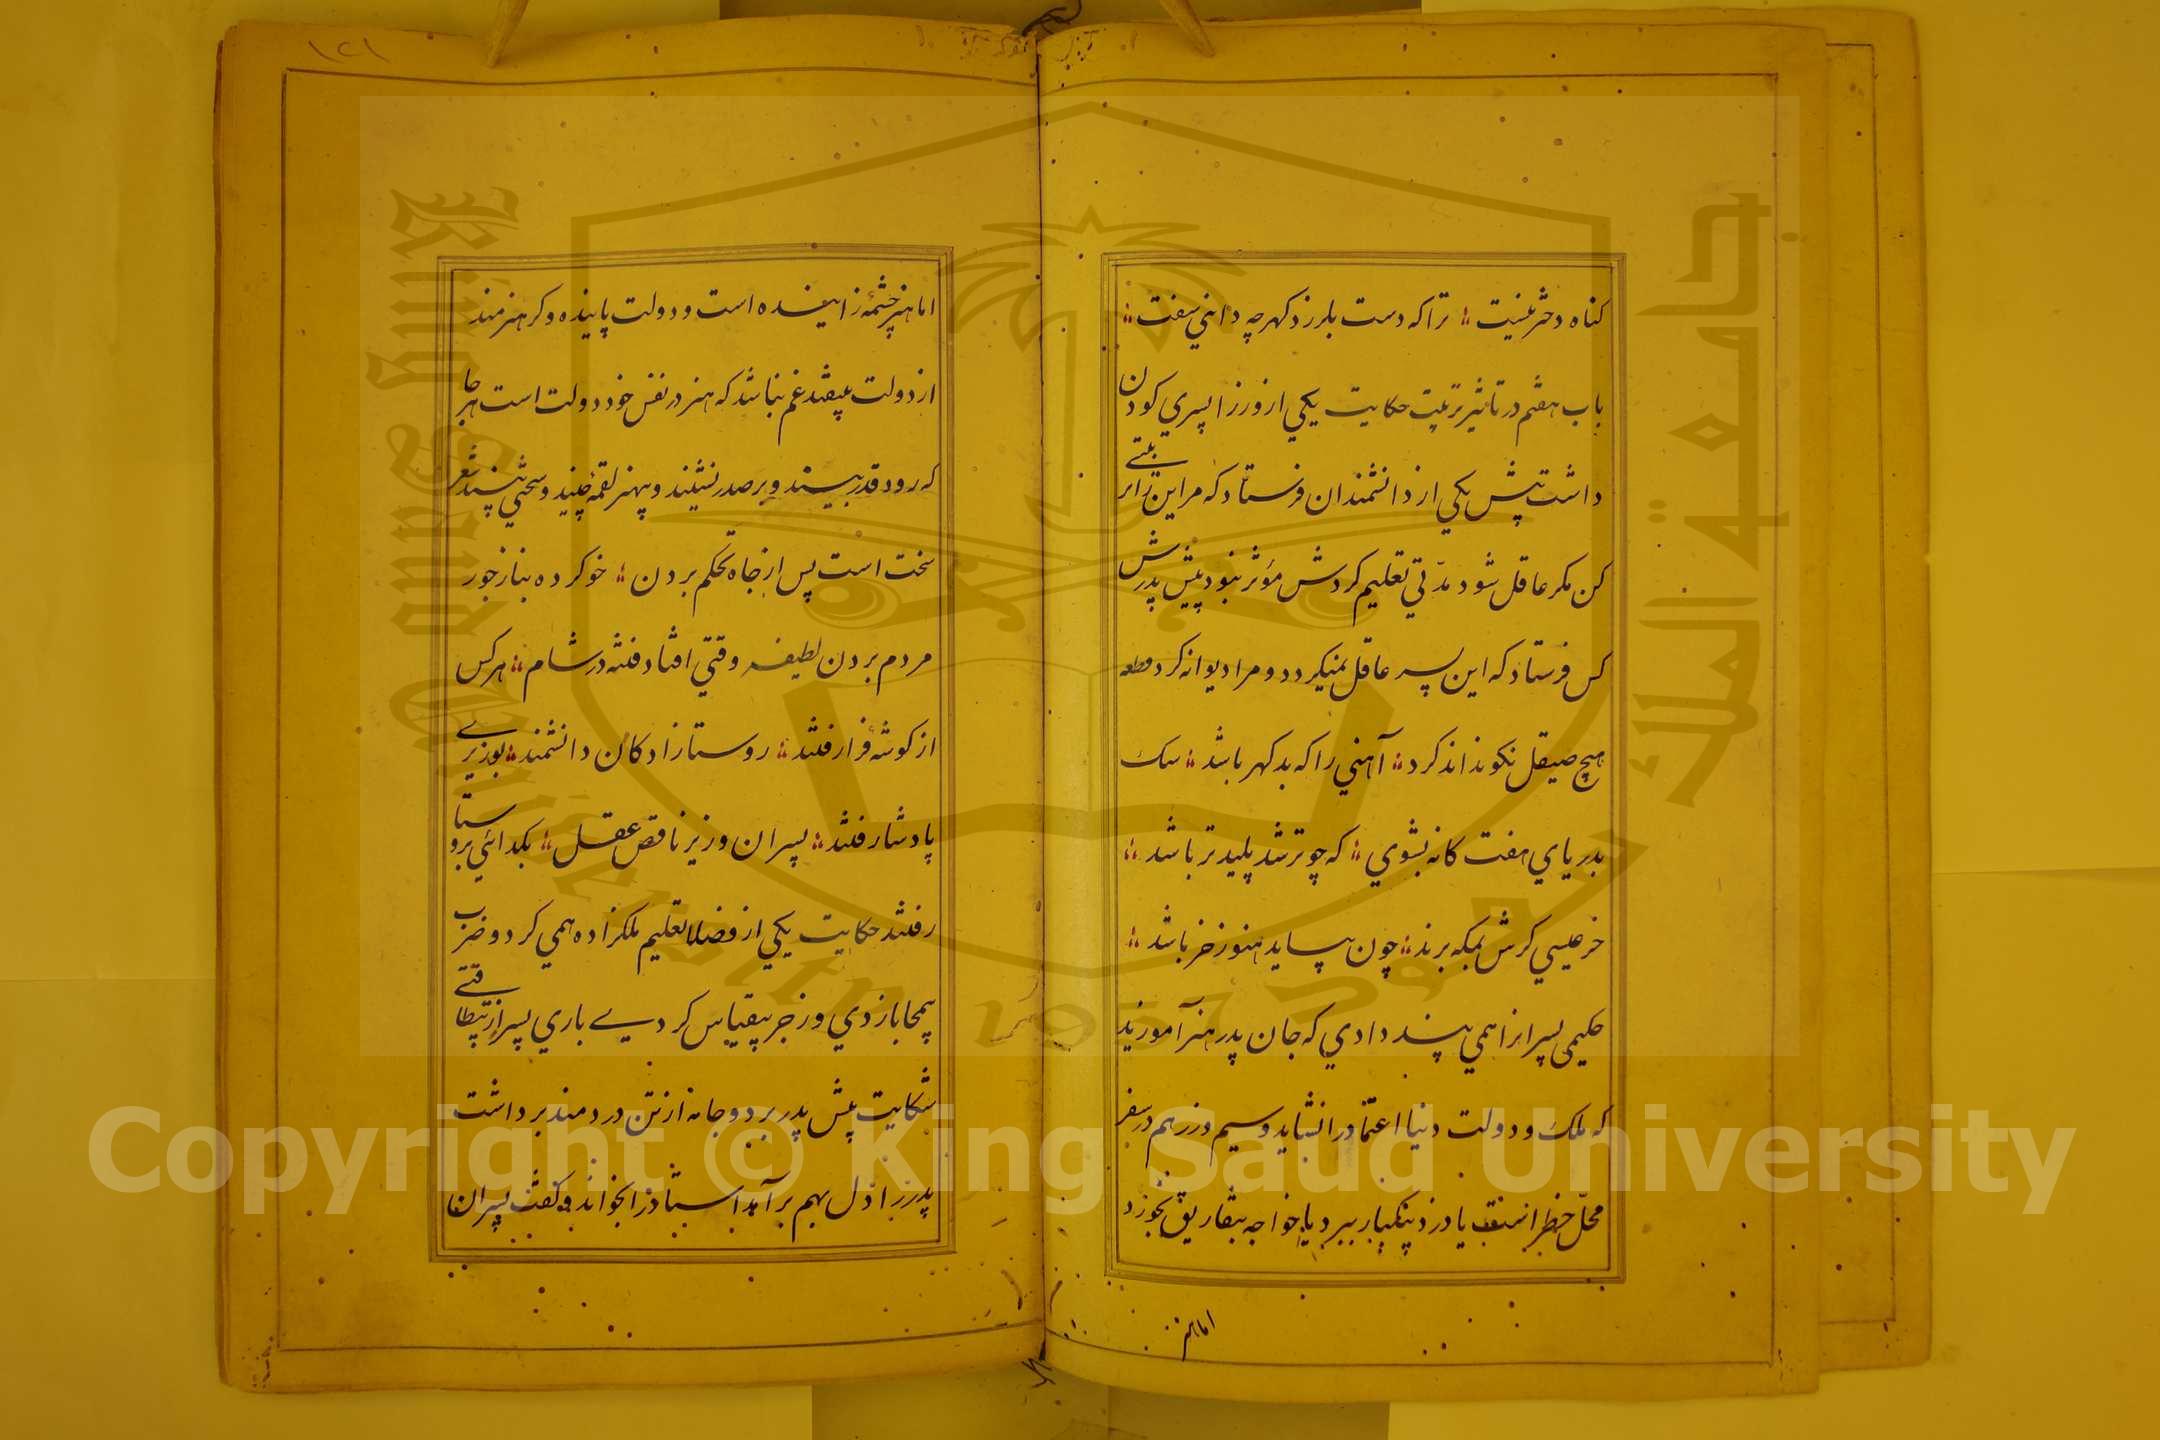 کناه دختر نیست ؛ تراکه دست بلرزد کهر چه دانی سفت ؛
باب هفتم در تاثیر تربیت حکایت یکی از وزرا پسری کودن
داشت پیش یکی از دانشمندان فرستاد که مر این را تربیتی
کن مکر عاقل شود مدّتی تعلیم کردش مؤثر نبود پیش پدرش
کس فرستاد که این پسر عاقل نمیکردد و مرا دیوانه کرد قطعه
هیچ صیقل نکو نداند کرد ؛ آهنی را که بد کهر باشد ؛ سک
بدریای هفت کانه بشوی ؛ که چو تر شد پلید تر باشد ؛
خر عیسی کرش بمکه برند ؛ چون بیاید هنوز خر باشد ؛
حکیمی پسرانرا همی پند دادی که جان پدر هنر آموزید
که ملک و دولت دنیا اعتماد را نشاید و سیم و زر هم در سفر
محلّ خطر است یا دزد بیکبار ببرد یا خواجه بتفاریق بخورد
اما هنر
١٢١
اما هنر چشمهٔ زاینده است و دولت پاینده و کر هنرمند
از دولت بیفتد غم نباشد که هنر در نفس خود دولت است هر جا
که رود قدر بیند و بر صدر نشیند و بیهنر لقمه چیند و سختی بیند شعر
سخت است پس از جاه تحکم بردن ؛ خو کرده بناز جور
مردم بردن لطیفه وقتی افتاد فتنه در شام ؛ هر کس
از کوشهٔ فرا رفتند ؛ روستا زادکان دانشمند ؛ بوزیری
پادشا رفتند ؛ پسران وزیر ناقص عقل ؛ بکدائی بروستا
رفتند حکایت یکی از فضلا تعلیم ملکزاده همی کرد و ضرب
بیمحابا زدی و زجر بیقیاس کردے باری پسر از بیطاقتی
شکایت پیش پدر برد و جامه از تن دردمند برداشت
پدر را دل بهم بر آمد استاد را بخواند و کفت پسران
Copyright © King Saud University
King Saud University
جامعة الملك سعود
1957